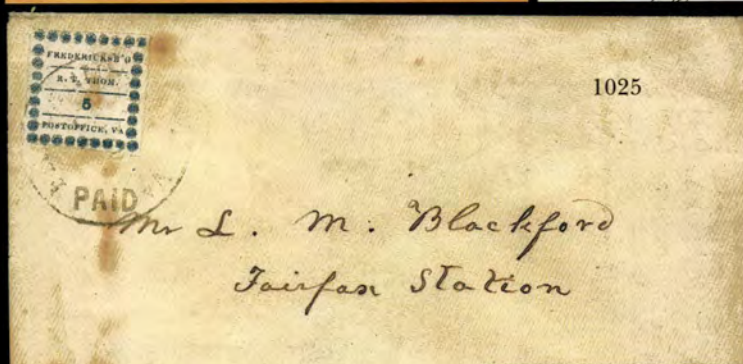 FREDERICKSB'G
R. T. THOM.
5
POSTOFFICE, VA
PAID
1025
Mr L. M. Blackford
Fairfax Station